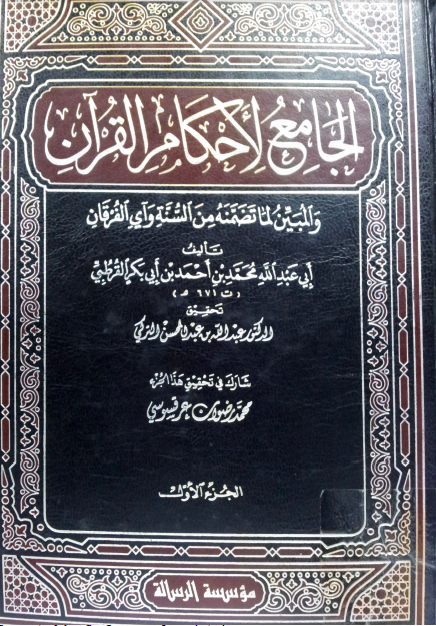 الجامع لأحكام القرآن
والمبين لما تضمنه من السنة وآي الفرقان
تأليف
أبي عبد الله محمد بن أحمد بن أبي بكر القرطبي
(ت ٦٧١ هـ)
تحقيق
الدكتور عبد الله بن عبد المحسن التركي
شارك في تحقيق هذا الجزء
محمد رضوان عرقسوسي
الجزء الأول
مؤسسة الرسالة